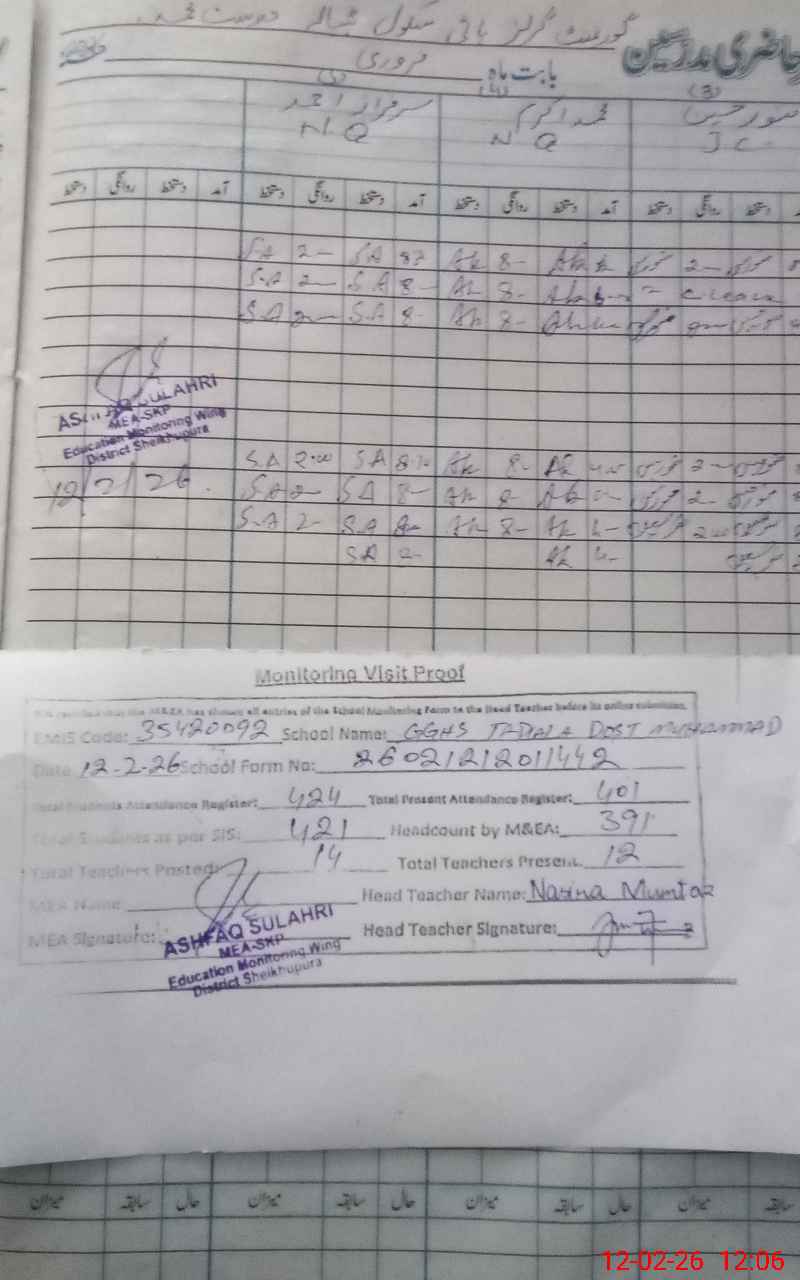 گورنمنٹ گرلز ہائی سکول ٹپیالہ دوست محمد
حاضری مدرسین
بابت ماہ فروری
(5) (4) (3)
سرفراز احمد محمد اکرم
N.Q N Q J C
دستخط روانگی دستخط آمد دستخط روانگی دستخط آمد دستخط روانگی دستخط آمد دستخط روانگی دستخط
S.A 2- S.A Ah 8- Ah 2-
S.A 2- S.A 8- Ah 8-
S.A 2- S.A 8- Ah 8- Ah
ASHFAQ SULAHRI
MEA-SKP
Education Monitoring Wing
District Sheikhupura
12/2/26.
S.A 2.00 S.A Ah 8- Ah 2-
S.A 2- S.A 8- Ah 8- Ah 2-
S.A 2- S.A 8- Ah 8- Ah 2-
S.A Ah
Monitoring Visit Proof
It is certified that the M&EA has shown all entries of the School Monitoring Form to the Head Teacher before its online submission.
EMIS Code: 35420092 School Name: GGHS TAPIALA DOST MUHAMMAD
Date 12-2-26 School Form No: 26021212011442
Total Students Attendance Register: 424 Total Present Attendance Register: 401
Total Students as per SIS: 421 Headcount by M&EA: 391
Total Teachers Posted: 14 Total Teachers Present: 12
MEA Name Head Teacher Name: Nasina Mumtaz
MEA Signature: Head Teacher Signature:
ASHFAQ SULAHRI
MEA-SKP
Education Monitoring Wing
District Sheikhupura
میزان سابقہ حال میزان سابقہ حال میزان سابقہ حال میزان سابقہ
12-02-26 12:06